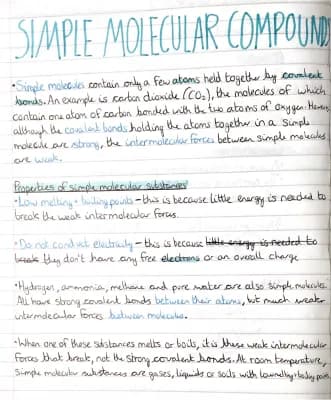 SIMPLE MOLECULAR COMPOUNDS
•Simple molecules contain only a few atoms held together by covalent
bonds. An example is carbon dioxide (CO₂), the molecules of which
contain one atom of carbon bonded with the two atoms of oxygen. However,
although the covalent bonds holding the atoms together in a simple
molecule are strong, the intermolecular forces between simple molecules
are weak.
Properties of simple molecular substances
•Low melting + boiling points - this is because little energy is needed to
break the weak intermolecular forces.
•Do not conduct electricity - this is because little energy is needed to
break they don't have any free electrons or an overall charge
•Hydrogen, ammonia, methane and pure water are also simple molecules.
All have strong covalent bonds between their atoms, but much weaker
intermolecular forces between molecules.
•When one of these substances melts or boils, it is these weak intermolecular
forces that break, not the strong covalent bonds. At room temperature,
simple molecular substances are gases, liquids or soils with low melting + boiling points.